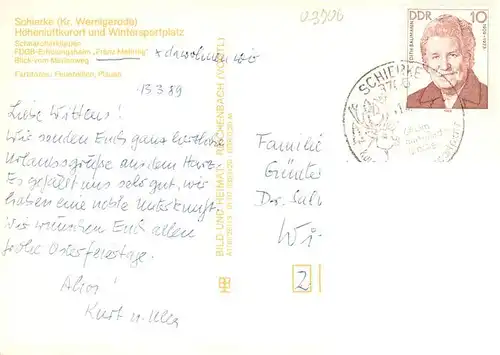 Schierke (Kr. Wernigerode)
Höhenluftkurort und Wintersportplatz
Schnarcherklippen
FDGB-Erholungsheim „Franz Mehring"
x da wohnen wir
Blick vom Marienweg
Farbfotos: Feuerstein, Plauen
03706
13.3.89
Liebe Wittens!
Wir senden Euch ganz herzliche
Urlaubsgrüße aus dem Harz.
Es gefällt uns sehr gut, wir
haben eine noble Unterkunft.
Wir wünschen Euch allen
frohe Osterfeiertage.
Kurt u. Ulla
BILD UND HEIMAT REICHENBACH (VOGTL)
DDR 10
EDITH BAUMANN
SCHIERKE
Familie
Günter
Wi